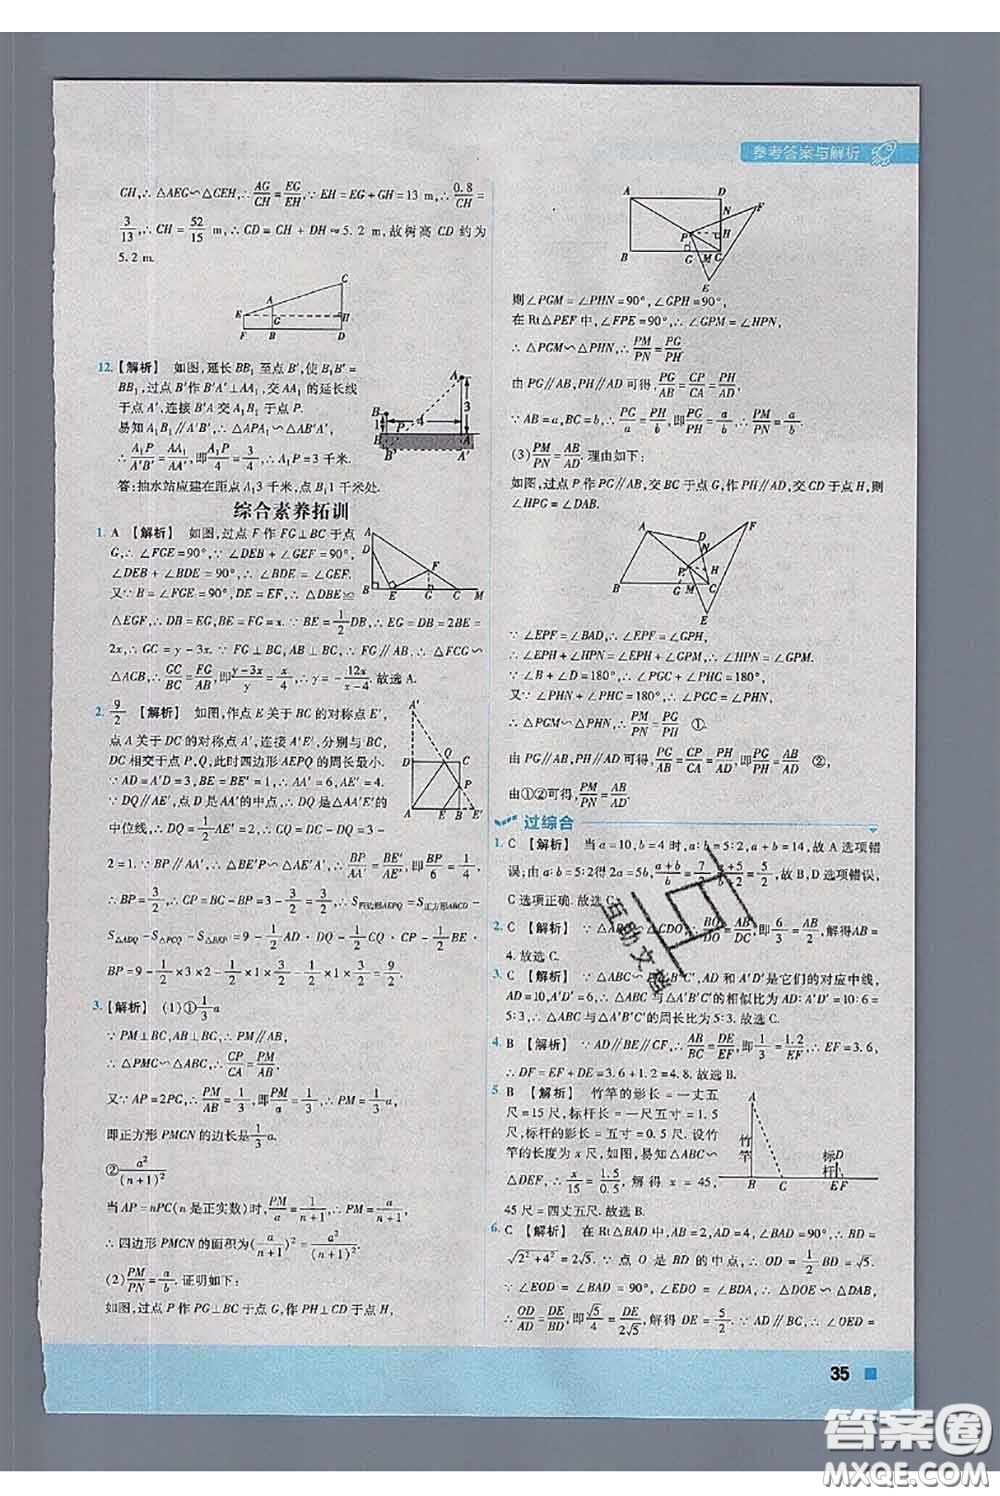 参考答案与解析
CH,∴△AEG∽△CEH,∴AG/CH=EG/EH,∵EH=EG+GH=13 m,∴0.8/CH=
3/13,∴CH=52/15 m,∴CD=CH+DH≈5.2 m,故树高 CD 约为
5.2 m.
12.【解析】 如图,延长 BB₁ 至点 B′,使 B₁B′=
BB₁,过点 B′作 B′A′⊥AA₁,交 AA₁ 的延长线
于点 A′,连接 B′A 交 A₁B₁ 于点 P.
易知 A₁B₁∥A′B′,∴△APA₁∽△AB′A′,
∴A₁P/A′B′=AA₁/AA′,即A₁P/4=3/4,∴A₁P=3 千米.
答:抽水站应建在距点 A₁3 千米,点 B₁1 千米处.
综合素养拓训
1. A 【解析】 如图,过点 F 作 FG⊥BC 于点
G,∴∠FGE=90°,∴∠DEB+∠GEF=90°.
∠DEB+∠BDE=90°,∴∠BDE=∠GEF.
又∵∠B=∠FGE=90°,DE=EF,∴△DBE≌
△EGF,∴DB=EG,BE=FG=x.∵BE=1/2DB,∴EG=DB=2BE=
2x,∴GC=y-3x.∵FG⊥BC,AB⊥BC,∴FG∥AB,∴△FCG∽
△ACB,∴GC/BC=FG/AB,即y-3x/y=x/4,∴y=-12x/x-4.故选 A.
2. 9/2 【解析】 如图,作点 E 关于 BC 的对称点 E′,
点 A 关于 DC 的对称点 A′,连接 A′E′,分别与 BC,
DC 相交于点 P,Q,此时四边形 AEPQ 的周长最小.
∵AD=A′D=3,BE=BE′=1,∴AA′=6,AE′=4.
∵DQ∥AE′,点 D 是 AA′的中点,∴DQ 是△AA′E′的
中位线,∴DQ=1/2AE′=2,∴CQ=DC-DQ=3-
2=1.∵BP∥AA′,∴△BE′P∽△AE′A′,∴BP/AA′=BE′/AE′,即BP/6=1/4,
∴BP=3/2,∴CP=BC-BP=3/2,∴S四边形AEPQ=S正方形ABCD-
S△ADQ-S△PCQ-S△BEP=9-1/2AD·DQ-1/2CQ·CP-1/2BE·
BP=9-1/2×3×2-1/2×1×3/2-1/2×1×3/2=9/2.
3.【解析】 (1)①1/3a
∵PM⊥BC,AB⊥BC,∴PM∥AB,
∴△PMC∽△ABC,∴CP/CA=PM/AB.
又∵AP=2PC,∴PM/AB=1/3,即PM/a=1/3,∴PM=1/3a,
即正方形 PMCN 的边长是1/3a.
②a²/(n+1)²
当 AP=nPC(n 是正实数)时,PM/a=1/n+1,∴PM=a/n+1,
∴四边形 PMCN 的面积为(a/n+1)²=a²/(n+1)².
(2)PM/PN=a/b.证明如下:
如图,过点 P 作 PG⊥BC 于点 G,作 PH⊥CD 于点 H,
则∠PGM=∠PHN=90°,∠GPH=90°,
在 Rt△PEF 中,∠FPE=90°,∴∠GPM=∠HPN,
∴△PGM∽△PHN,∴PM/PN=PG/PH.
由 PG∥AB,PH∥AD 可得,PG/AB=CP/CA=PH/AD.
∵AB=a,BC=b,∴PG/a=PH/b,即PG/PH=a/b,∴PM/PN=a/b.
(3)PM/PN=AB/AD.理由如下:
如图,过点 P 作 PG∥AB,交 BC 于点 G,作 PH∥AD 交 CD 于点 H,则
∠HPG=∠DAB.
∵∠EPF=∠BAD,∴∠EPF=∠GPH,
∴∠EPH+∠HPN=∠EPH+∠GPM,∴∠HPN=∠GPM.
∵∠B+∠D=180°,∴∠PGC+∠PHC=180°,
又∵∠PHN+∠PHC=180°,∴∠PGC=∠PHN,
∴△PGM∽△PHN,∴PM/PN=PG/PH ①.
由 PG∥AB,PH∥AD 可得,PG/AB=CP/CA=PH/AD,即PG/PH=AB/AD ②,
由①②可得,PM/PN=AB/AD.
过综合
1. C 【解析】 当 a=10,b=4 时,a∶b=5∶2,a+b=14,故 A 选项错
误;由 a∶b=5∶2得 2a=5b,a+b/b=7/2,a+b/b=5+2/2,故 B,D 选项错误,
C 选项正确.故选 C.
2. C 【解析】 ∵△ABO∽△CDO,∴BO/DO=AB/DC,即6/3=AB/2,解得AB=
4.故选 C.
3. C 【解析】 ∵△ABC∽△A′B′C′,AD 和 A′D′是它们的对应中线,
AD=10,A′D′=6,∴△ABC 与△A′B′C′的相似比为 AD∶A′D′=10∶6=
5∶3,∴△ABC 与△A′B′C′的周长比为 5∶3.故选 C.
4. B 【解析】 ∵AD∥BE∥CF,∴AB/BC=DE/EF,即1/3=1.2/EF,∴EF=3.6,
∴DF=DE+EF=3.6+1.2=4.8.故选 B.
5 B 【解析】 竹竿的影长=一丈五
尺=15 尺,标杆长=一尺五寸=1.5
尺,标杆的影长=五寸=0.5 尺.设竹
竿的长度为 x 尺,如图,易知△ABC∽
△DEF,∴x/15=1.5/0.5,解得 x=45,
45 尺=四丈五尺.故选 B.
6. C 【解析】 在 Rt△BAD 中,AB=2,AD=4,∠BAD=90°,∴BD=
√2²+4²=2√5.∵点 O 是 BD 的中点,∴OD=1/2BD=√5.
∵∠EOD=∠BAD=90°,∠EDO=∠BDA,∴△DOE∽△DAB,
∴OD/AD=DE/BD,即√5/4=DE/2√5,解得 DE=5/2.∵AD∥BC,∴∠OED=
35
互助文
答案圈
MXQE.COM